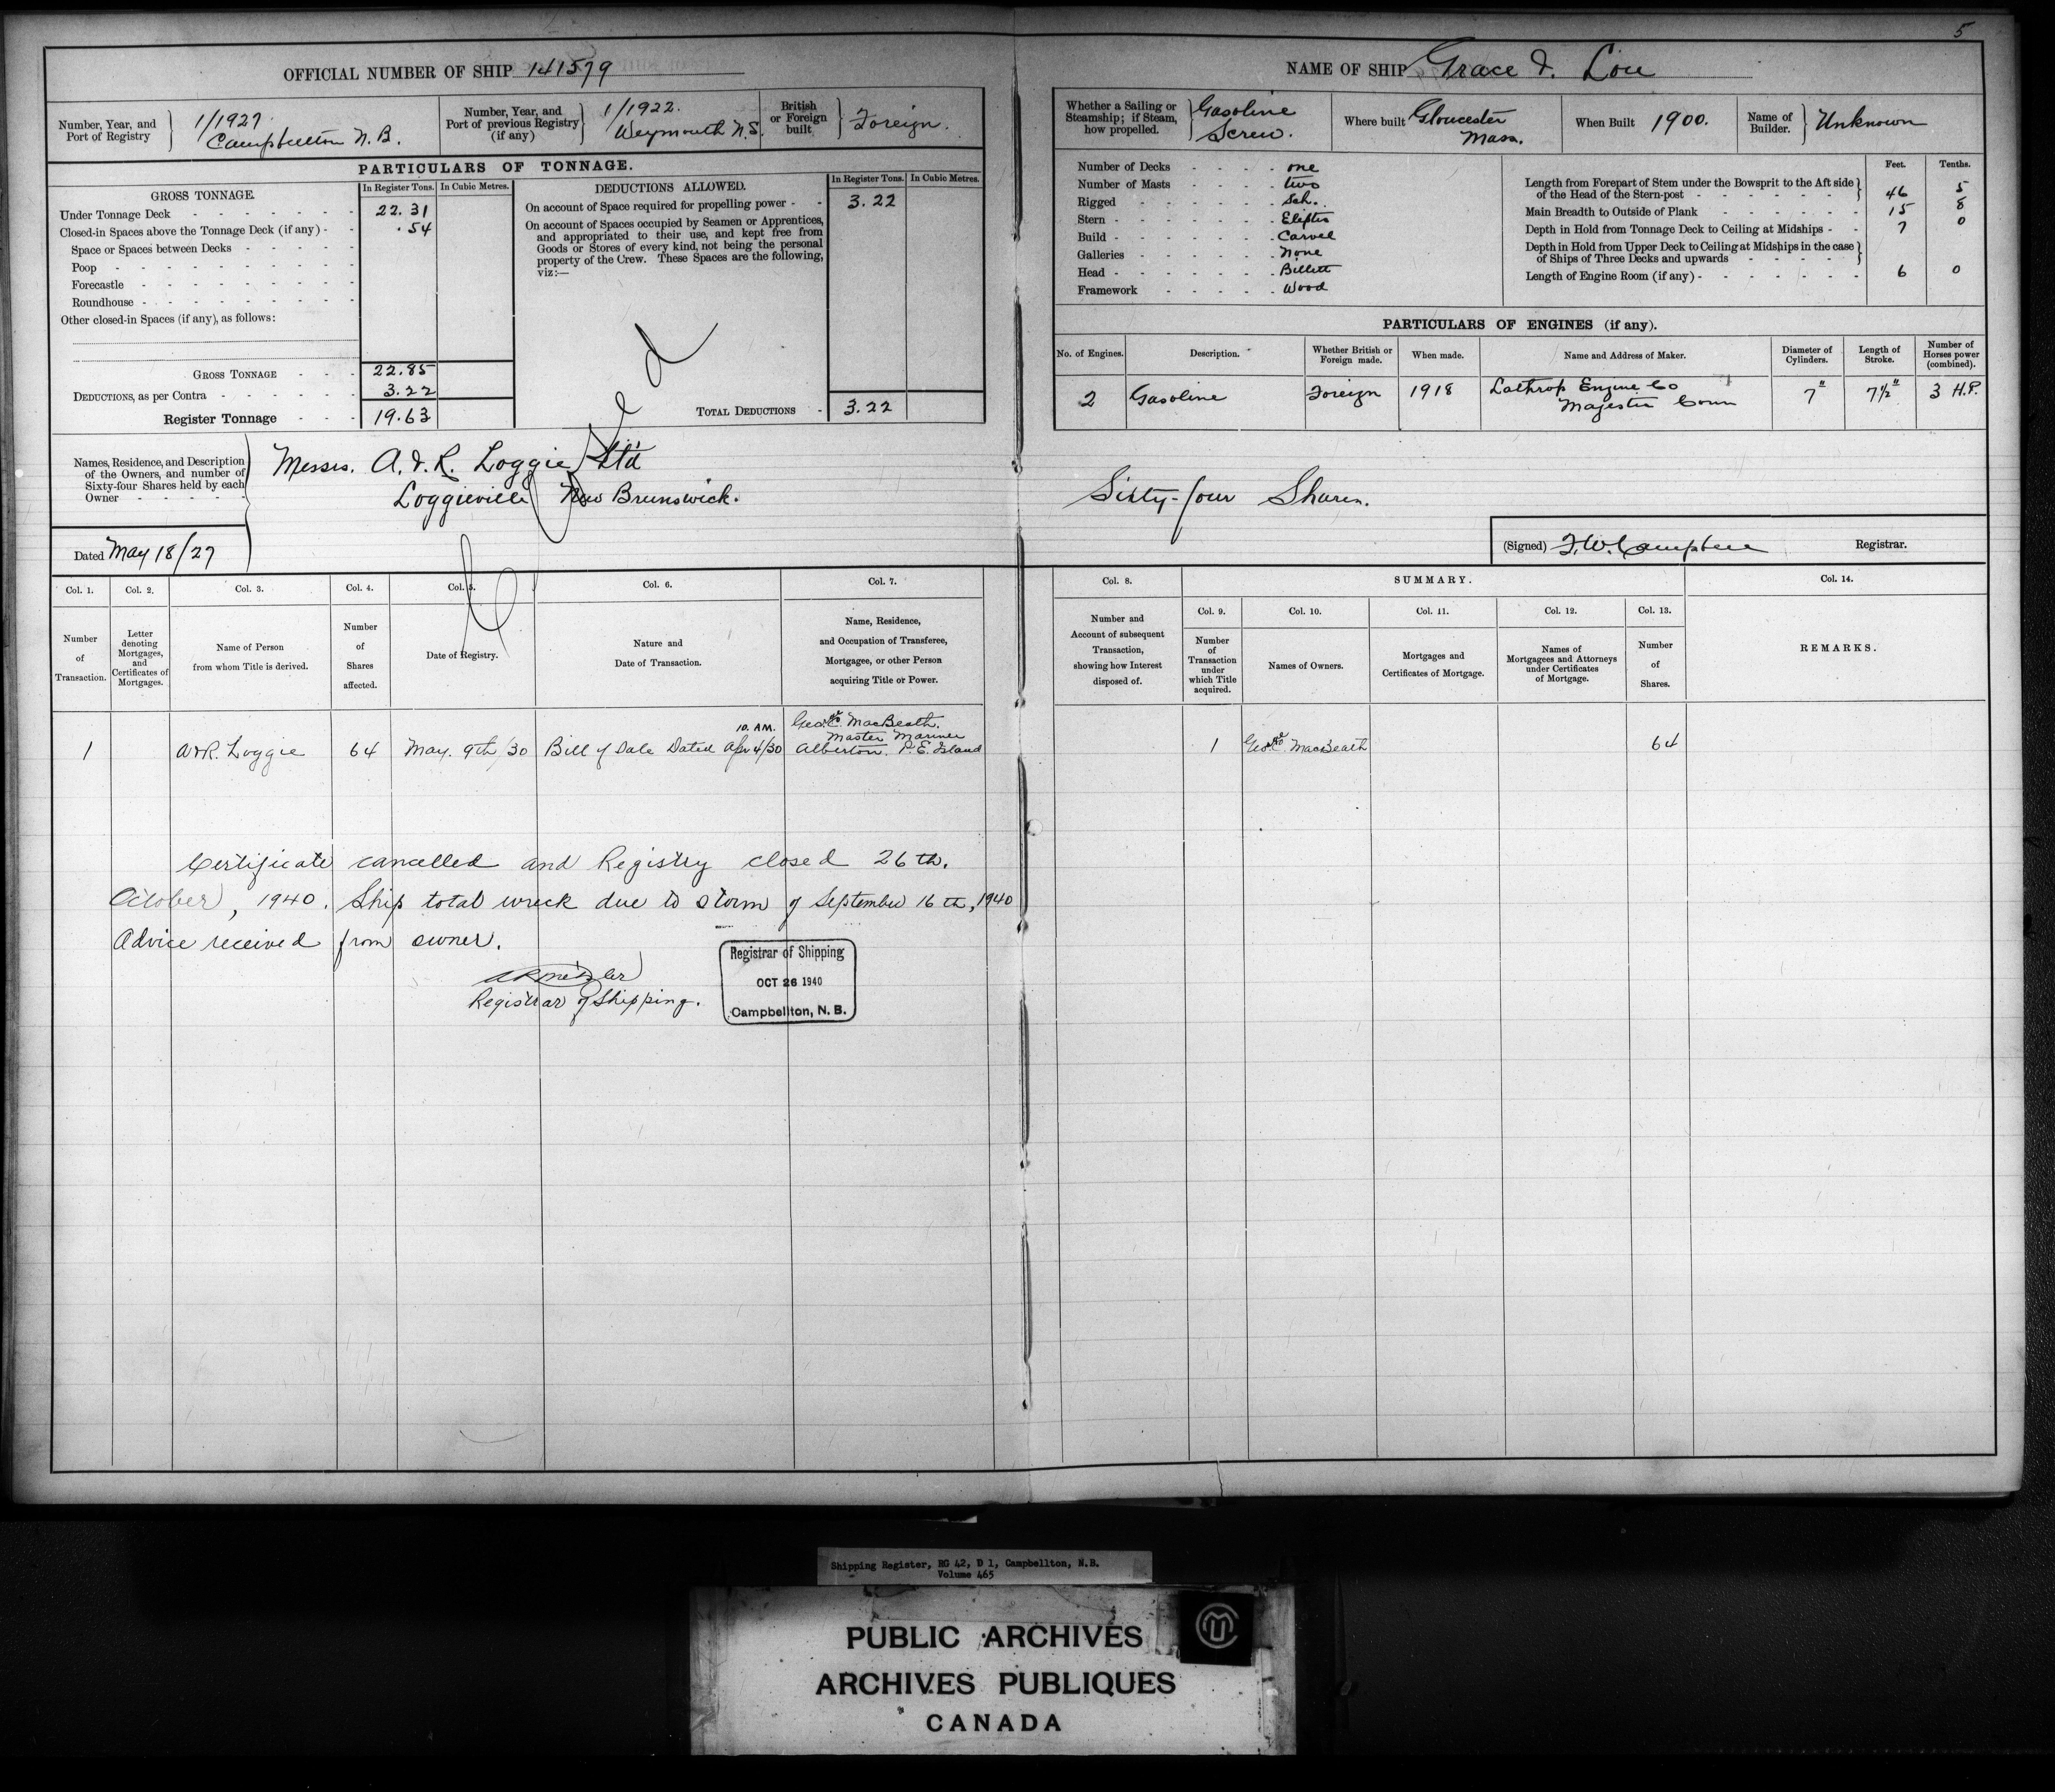 5
OFFICIAL NUMBER OF SHIP 141579
NAME OF SHIP Grace & Lou
Number, Year, and Port of Registry
1/1927.
Campbellton N.B.
Number, Year, and Port of previous Registry (if any)
1/1922.
Weymouth N.S.
British or Foreign built
Foreign.
PARTICULARS OF TONNAGE.
GROSS TONNAGE.
In Register Tons. In Cubic Metres.
Under Tonnage Deck 22.31
Closed-in Spaces above the Tonnage Deck (if any) .54
Space or Spaces between Decks
Poop
Forecastle
Roundhouse
Other closed-in Spaces (if any), as follows:
GROSS TONNAGE 22.85
DEDUCTIONS, as per Contra 3.22
Register Tonnage 19.63
DEDUCTIONS ALLOWED.
In Register Tons. In Cubic Metres.
On account of Space required for propelling power 3.22
On account of Spaces occupied by Seamen or Apprentices,
and appropriated to their use, and kept free from
Goods or Stores of every kind, not being the personal
property of the Crew. These Spaces are the following,
viz:—
TOTAL DEDUCTIONS 3.22
Whether a Sailing or Steamship; if Steam, how propelled.
Gasoline
Screw.
Where built Gloucester
Mass.
When Built 1900.
Name of Builder. Unknown
Number of Decks one
Number of Masts two
Rigged Sch.
Stern
Build Carvel
Galleries None
Head Billett
Framework Wood
Feet. Tenths.
Length from Forepart of Stem under the Bowsprit to the Aft side
of the Head of the Stern-post 46 5
Main Breadth to Outside of Plank 15 8
Depth in Hold from Tonnage Deck to Ceiling at Midships 7 0
Depth in Hold from Upper Deck to Ceiling at Midships in the case
of Ships of Three Decks and upwards
Length of Engine Room (if any) 6 0
PARTICULARS OF ENGINES (if any).
No. of Engines. Description. Whether British or Foreign made. When made. Name and Address of Maker. Diameter of Cylinders. Length of Stroke. Number of Horses power (combined).
2 Gasoline Foreign 1918 Lathrop Engine Co 7" 7½" 3 H.P.
Conn
Names, Residence, and Description
of the Owners, and number of
Sixty-four Shares held by each
Owner
Messrs. A. & R. Loggie Ltd
Loggieville New Brunswick.
Sixty-four Shares.
Closed
Dated May 18/27
(Signed) F.W. Campbell Registrar.
Col. 1. Col. 2. Col. 3. Col. 4. Col. 5. Col. 6. Col. 7. Col. 8. SUMMARY. Col. 14.
Col. 9. Col. 10. Col. 11. Col. 12. Col. 13.
Number of Transaction.
Letter denoting Mortgages, and Certificates of Mortgages.
Name of Person from whom Title is derived.
Number of Shares affected.
Date of Registry.
Nature and Date of Transaction.
Name, Residence, and Occupation of Transferee, Mortgagee, or other Person acquiring Title or Power.
Number and Account of subsequent Transaction, showing how Interest disposed of.
Number of Transaction under which Title acquired.
Names of Owners.
Mortgages and Certificates of Mortgage.
Names of Mortgagees and Attorneys under Certificates of Mortgage.
Number of Shares.
REMARKS.
10. A.M.
MacBeath.
Master Mariner
1 A&R. Loggie 64 May. 9th/30 Bill of Sale Dated Apr 4/30 Alberton. P.E. Island
1 MacBeath 64
Certificate cancelled and Registry closed 26th.
October, 1940. Ship total wreck due to storm of September 16th, 1940
Advice received from owner.
Registrar of Shipping.
Registrar of Shipping
OCT 26 1940
Campbellton, N. B.
Shipping Register, RG 42, D 1, Campbellton, N.B.
Volume 465
PUBLIC ARCHIVES
ARCHIVES PUBLIQUES
CANADA